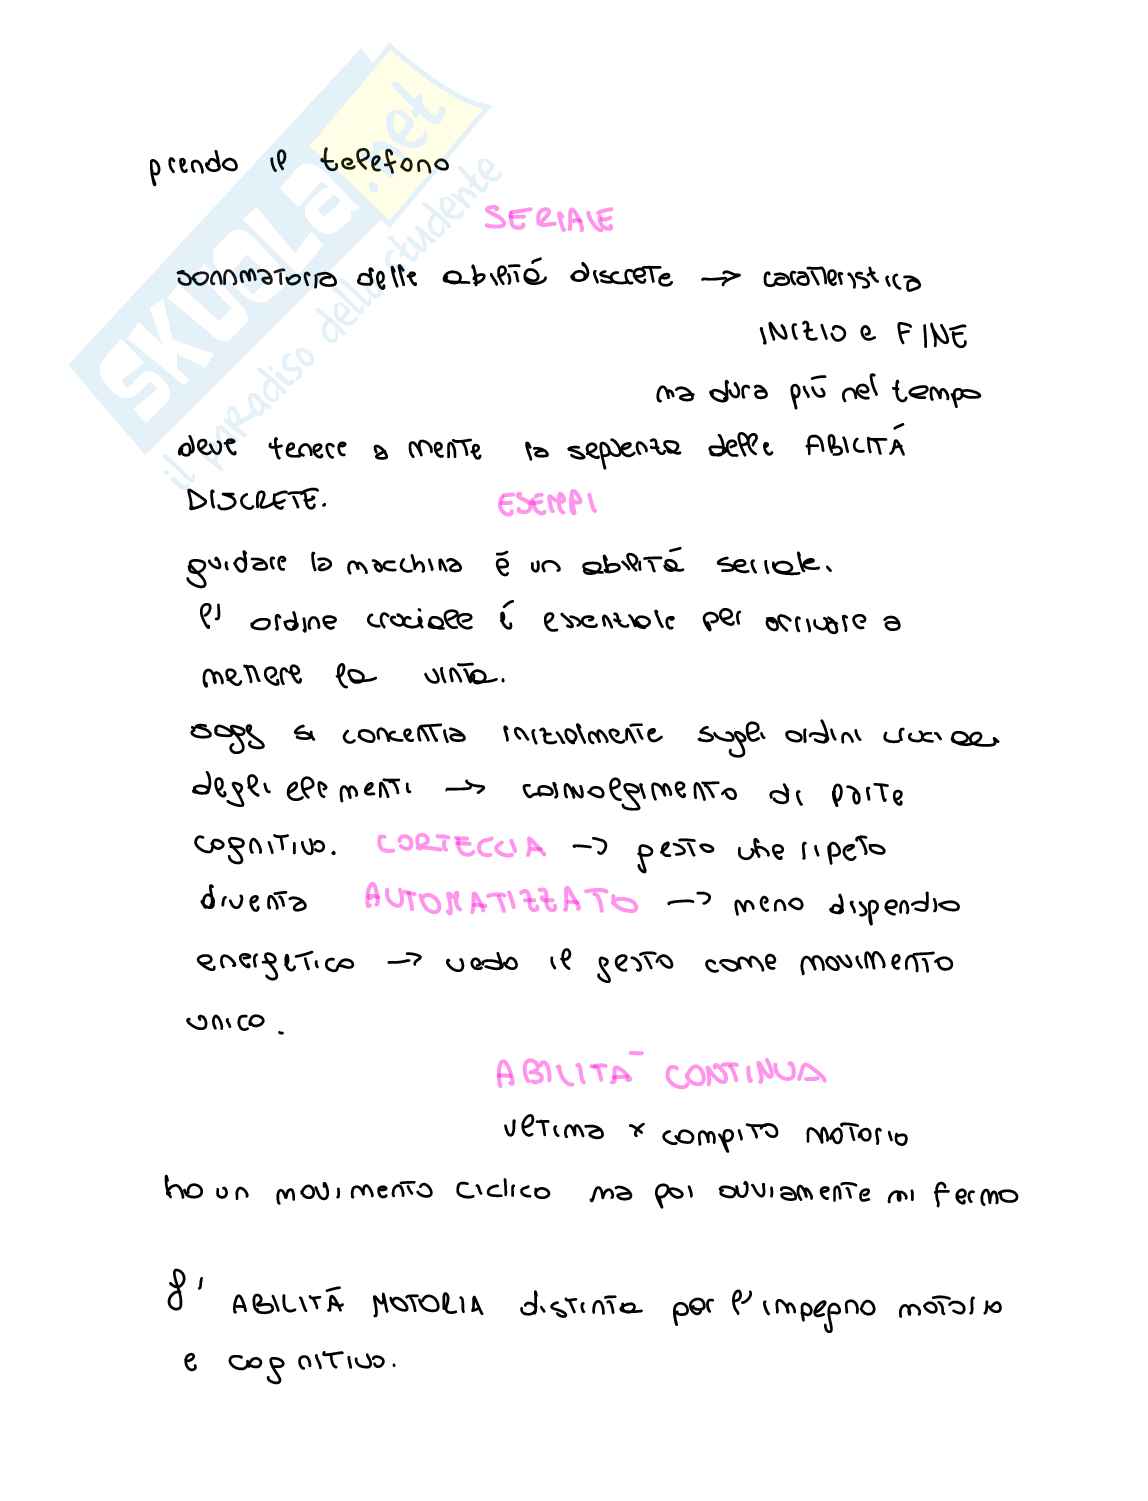 SKUOLA.net
il paradiso dello studente
prendo il telefono
SERIALE
sommatoria delle abilitá discrete → caratteristica
INIZIO e FINE
ma dura piū nel tempo
deve tenere a mente la sequenza delle ABILITÁ
DISCRETE.
ESEMPI
guidare la macchina ē un abilitá seriale.
l' ordine cruciale é essenziale per arrivare a
mettere la vinta.
sogg si concentra inizialmente sugli ordini cruciali
degli elementi → coinvolgimento di parte
cognitivo. CORTECCIA → gesto che ripeto
diventa AUTOMATIZZATO → meno dispendio
energetico → vedo il gesto come movimento
unico.
ABILITĀ CONTINUA
ultima x compito motorio
ho un movimento ciclico ma poi ovviamente mi fermo
l' ABILITÁ MOTORIA distinta per l'impegno motorio
e cognitivo.